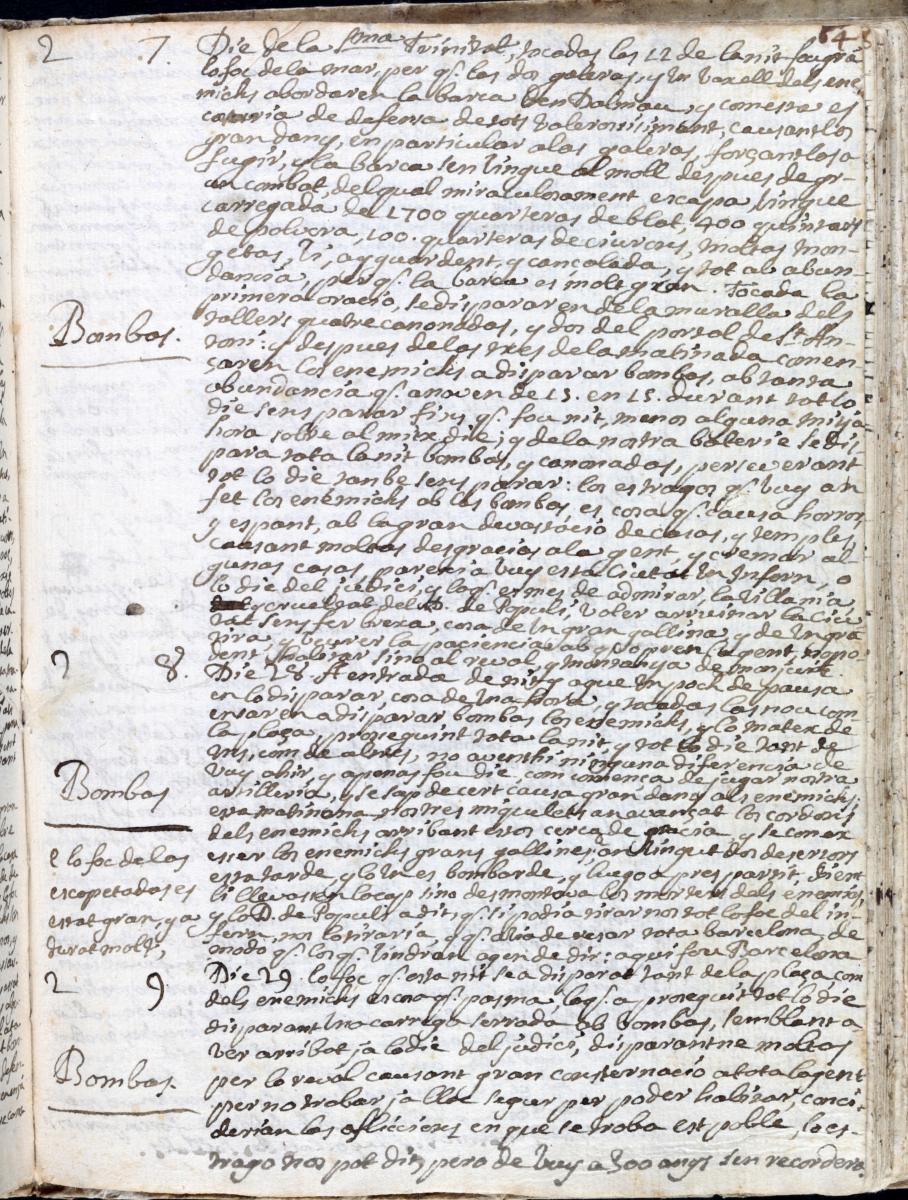 64
2 7. Die de la Sma Trinitat, tocadas las 12 de la nit fou gra
lo foc de la mar, per qs. las dos galeras, y un vaxell dels ene-
micks abordaren la barca den Dalmau, y com esta es
de defensa de tots valerosissimant, causantlos
gran dany, en particular a las galeras, forçantlosa
fugir, y la barca sen vingue al moll despues de gr-
an combat, del qual miraculosament escapa, vingue
carregada de 1700 quarteras de blat, 400 quintars
de polvora, 100. quarteras de ciurons, moltas mon-
getas, vi, ayguardent, y cansalada, y tot ab abun-
dancia, per qs. la barca es molt gran. Tocada la
primera oracio, se disparar en de la muralla dels
tallers quatre canonadas, y dos del portal de St. An-
toni: y despues de las tres de la matinada comen-
Bombas.
saren los enemicks a disparar bombas, ab tanta
abundancia qs. anaven de 15. en 15. durant tot lo
die sens parar fins qs. fou nit, menos alguna mitja
hora sobre al mitx die; y de la nostra baterie se dis-
para tota la nit bombas, y canonadas, perseverant
tot lo die tanbe sens parar: los estragos qs. vuy an
fet los enemicks ab las bombas, es cosa qs. causa horror,
y espant, ab la gran devastacio de casas, y temples
causant moltas desgracias a la gent, y cremar al-
gunas casas, parexia vuy esta Ciutat un Infern, o
lo die del judici, y lo qs. es mes de admirar la villania,
y crueltat del D. de Populi, voler arruinar la Ciu-
tat sens fer brexa, cosa de un gran gallina, y de un gra
tira, y veurer la paciencia ab qs. o pren la gent, no po-
dent habitar sino al reval, y montanya de monjuich
2 8. Die 28. A entrada de nit y ague un poch de pausa
en lo disparar, cosa de una hora, y tocadas las nou com-
ensaren a disparar bombas los enemicks, y lo matex de
la plaça, prosequint tota la nit, y tot lo die tant de
uns, com de altres, no aventhi ninguna diferencia de
vuy ahir, y apenas fou die, com comença de jugar nostra
Bombas
artilleria, y se sap de cert causa gran dany als enemicks;
esta matinana nostres miquelets an avançat los cordons
dels enemicks arribant estos cerca de gracia, y se conex
esser los enemicks grans gallines, an vingut dos desertors
esta tarde, y lo un es bombarde, y luego a pres partit, dient
li llevassen lo cap sino desmontava los morters dels enemics,
y lo D. de Populi a dit, qs. si podia tirarnos tot lo foc del in-
fern, nos lo tiraria, y qs. avia de cremar tota Barcelona, de
modo qs. los qs. vindran agen de dir: aqui fou Barcelona
e lo foc de las
escopetadas es
estat gran, y a
durat molt,
2 9 Die 29. lo foc qs. esta nit se a disparat tant de la plaça, com
dels enemicks es cosa qs. pasma, lo qs. a prosequit tot lo die
disparant una carrega serrada ab bombas, semblant a
ver arribat ja lo die del judici, disparantne moltas
Bombas.
per lo raval causant gran consternacio a tota la gent
per no trobar ja lloc segur per poder habitar, conci-
derian las afliccions en que se troba est poble, lo es-
trago nos pot dir, pero de vuy a 300 anys sen recordera